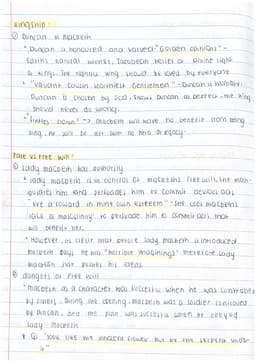 Kingship:
① Duncan vs Macbeth
* Duncan is honoured and valued "Golden opinions" -
Earths natural wonder, Jacobean belief of divine right
kings. The rightful king should be loved by everyone
* "Valiant cousin, worthiest Gentlemen" - Duncan is humble,
Duncan is chosen by God, shows Duncan as perfect, the king
should never do wrong.
* "fruitless crown" → Macbeth will have no benefit from being
king, he will be left with no heir or legacy.
Fate vs Free will:
① Lady Macbeth has authority
* Lady Macbeth is in control of Macbeths free will, she man-
ipulates him and persuades him to commit devious acts
"live a coward in thine own esteem" - she uses Macbeths
lack of masculinity to persuade him to commit acts that
will benefit her.
* However, its clear that before Lady Macbeth is introduced
Macbeth says he has "horrible imaginings" therefore Lady
Macbeth just pushes his ideas.
② dangers of Free will
* Macbeth as a character was successful when he was controlled
by others, during the opening, Macbeth was a soldier controlled
by Duncan, and the plan was successful when he obeyed
Lady Macbeth
* "look like the innocent flower but be the serpent under
it"